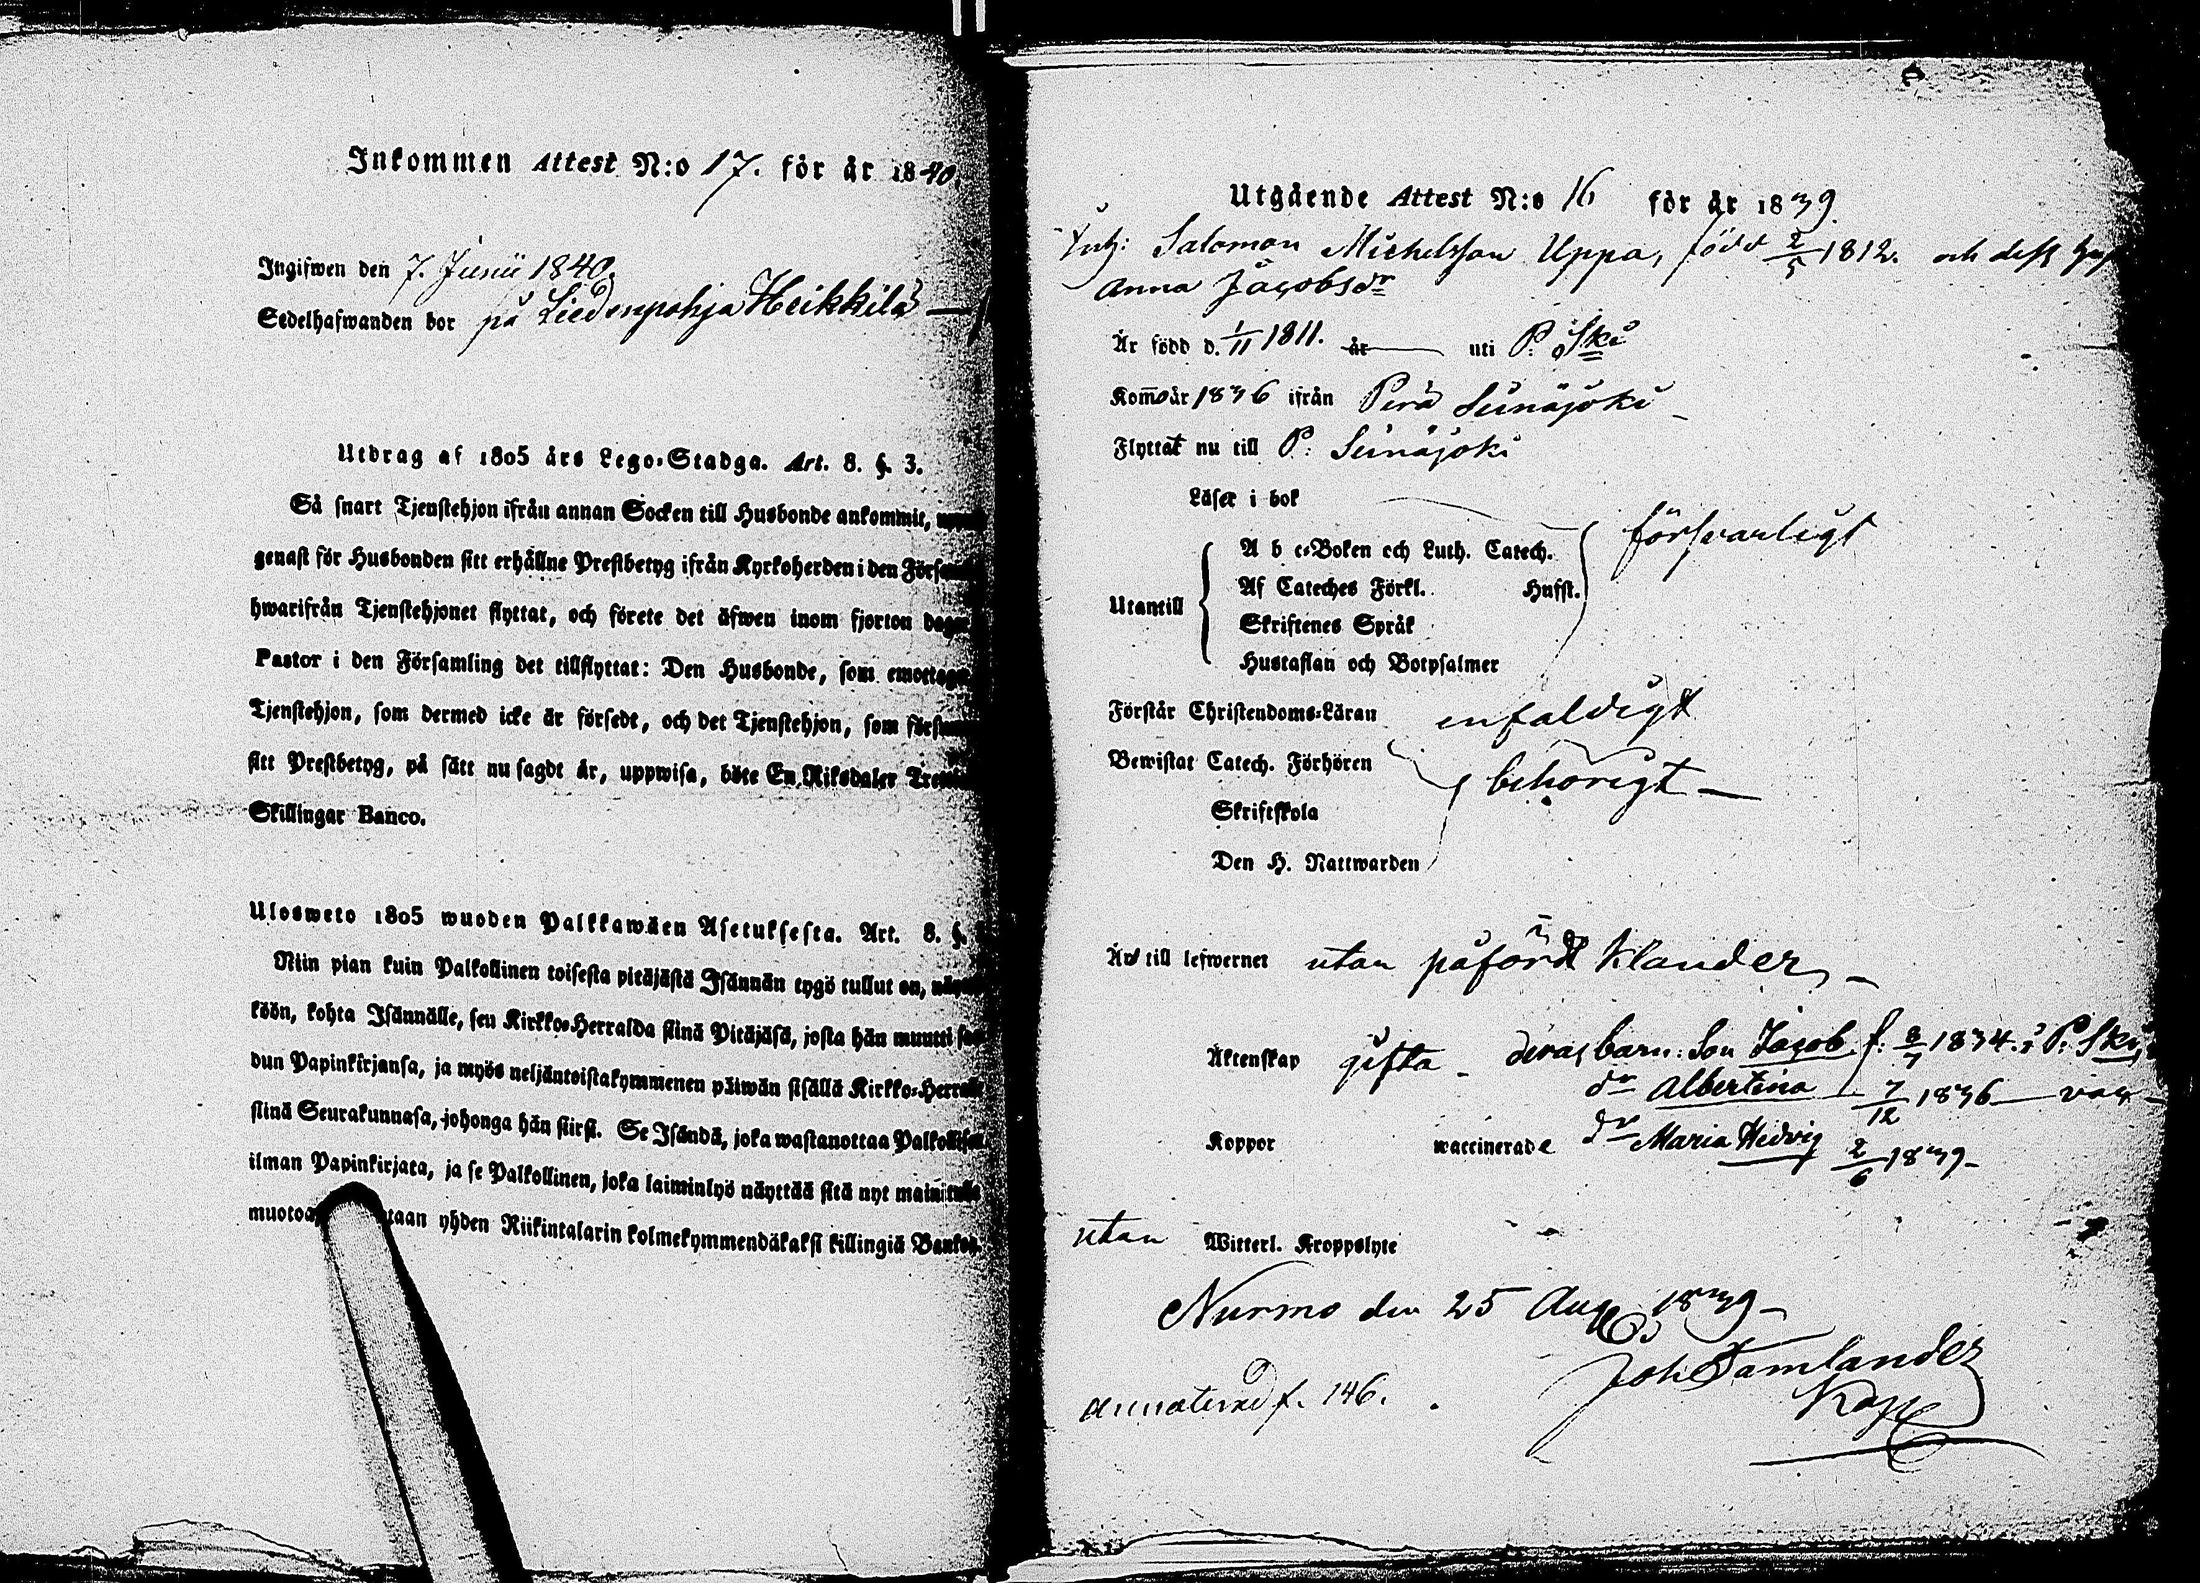 Inkommen Attest N:o 17. för år 1840.
Ingifwen den 7. Junii 1840.
Sedelhafwanden bor på Liedenpohja Heikkilä —
Utdrag af 1805 års Lego-Stadga. Art. 8. §. 3.
Så snart Tjenstehjon ifrån annan Socken till Husbonde ankommit,
genast för Husbonden sitt erhållne Prestbetyg ifrån Kyrkoherden i den
hwarifrån Tjenstehjonet flyttat, och förete det äfwen inom fjorton
Pastor i den Församling det tillflyttat: Den Husbonde, som emottager
Tjenstehjon, som dermed icke är försedt, och det Tjenstehjon, som
sitt Prestbetyg, på sätt nu sagdt är, uppwisa, böte En Riksdaler
Skillingar Banco.
Ulosweto 1805 wuoden Palkkawäen Asetuksesta. Art. 8. §.
Niin pian kuin Palkollinen toisesta pitäjästä Isännän tygö tullut on,
köön, kohta Isännälle, sen Kirkko-Herralda siinä Pitäjäsä, josta hän muutti
dun Papinkirjansa, ja myös neljäntoistakymmenen päiwän sisällä Kirkko-
siinä Seurakunnasa, johonga hän siirsi. Se Isändä, joka wastanottaa
ilman Papinkirjata, ja se Palkollinen, joka laiminlyö näyttää sitä nyt
yhden Riikintalarin kolmekymmendäkaksi killingiä Bankos.
Utgående Attest N:o 16 för år 1839.
Salomon Michelsson Uppa, född 2/5 1812. och dess
Anna Jacobsdr
Är född d. 1/11 1811. år uti P: Ski
Kom år 1836 ifrån Perä Seinäjoki
Flyttat nu till P: Seinäjoki
Läser i bok
försvarligt
A b c-Boken och Luth. Catech.
Af Cateches Förkl. Husst.
Utantill
Skriftenes Språk
Hustaflan och Botpsalmer
Förstår Christendoms-Läran enfaldigt
Bewistat Catech. Förhören behörigt —
Skriftskola
Den H. Nattwarden
Är till lefwernet utan påförd klander, —
Äktenskap gifta — deras barn: Son Jacob f: 8/7 1834. i P. Ski,
dr Albertina 7/12 1836
Koppor waccinerade dr Maria Hedvig 2/6 1839 —
utan Witterl. Kroppslyte
Nurmo den 25 Aug 1839 —
Joh Tamlander
Kapl
annoterad f. 146.